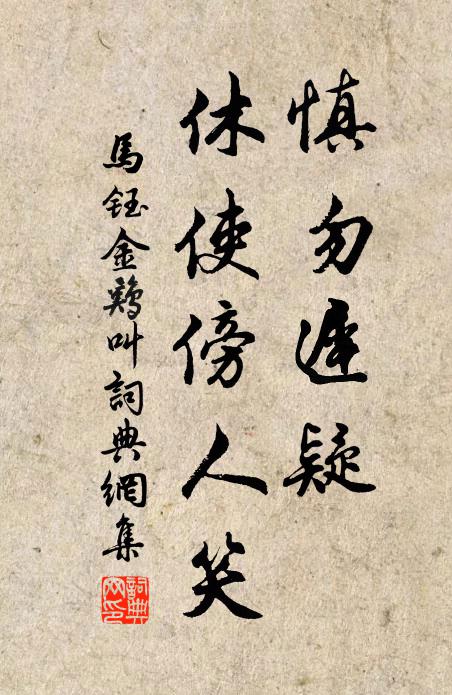 慎勿遅疑
休使傍人笑
馬鈺金鷄叫詞典網集
詞典
网印